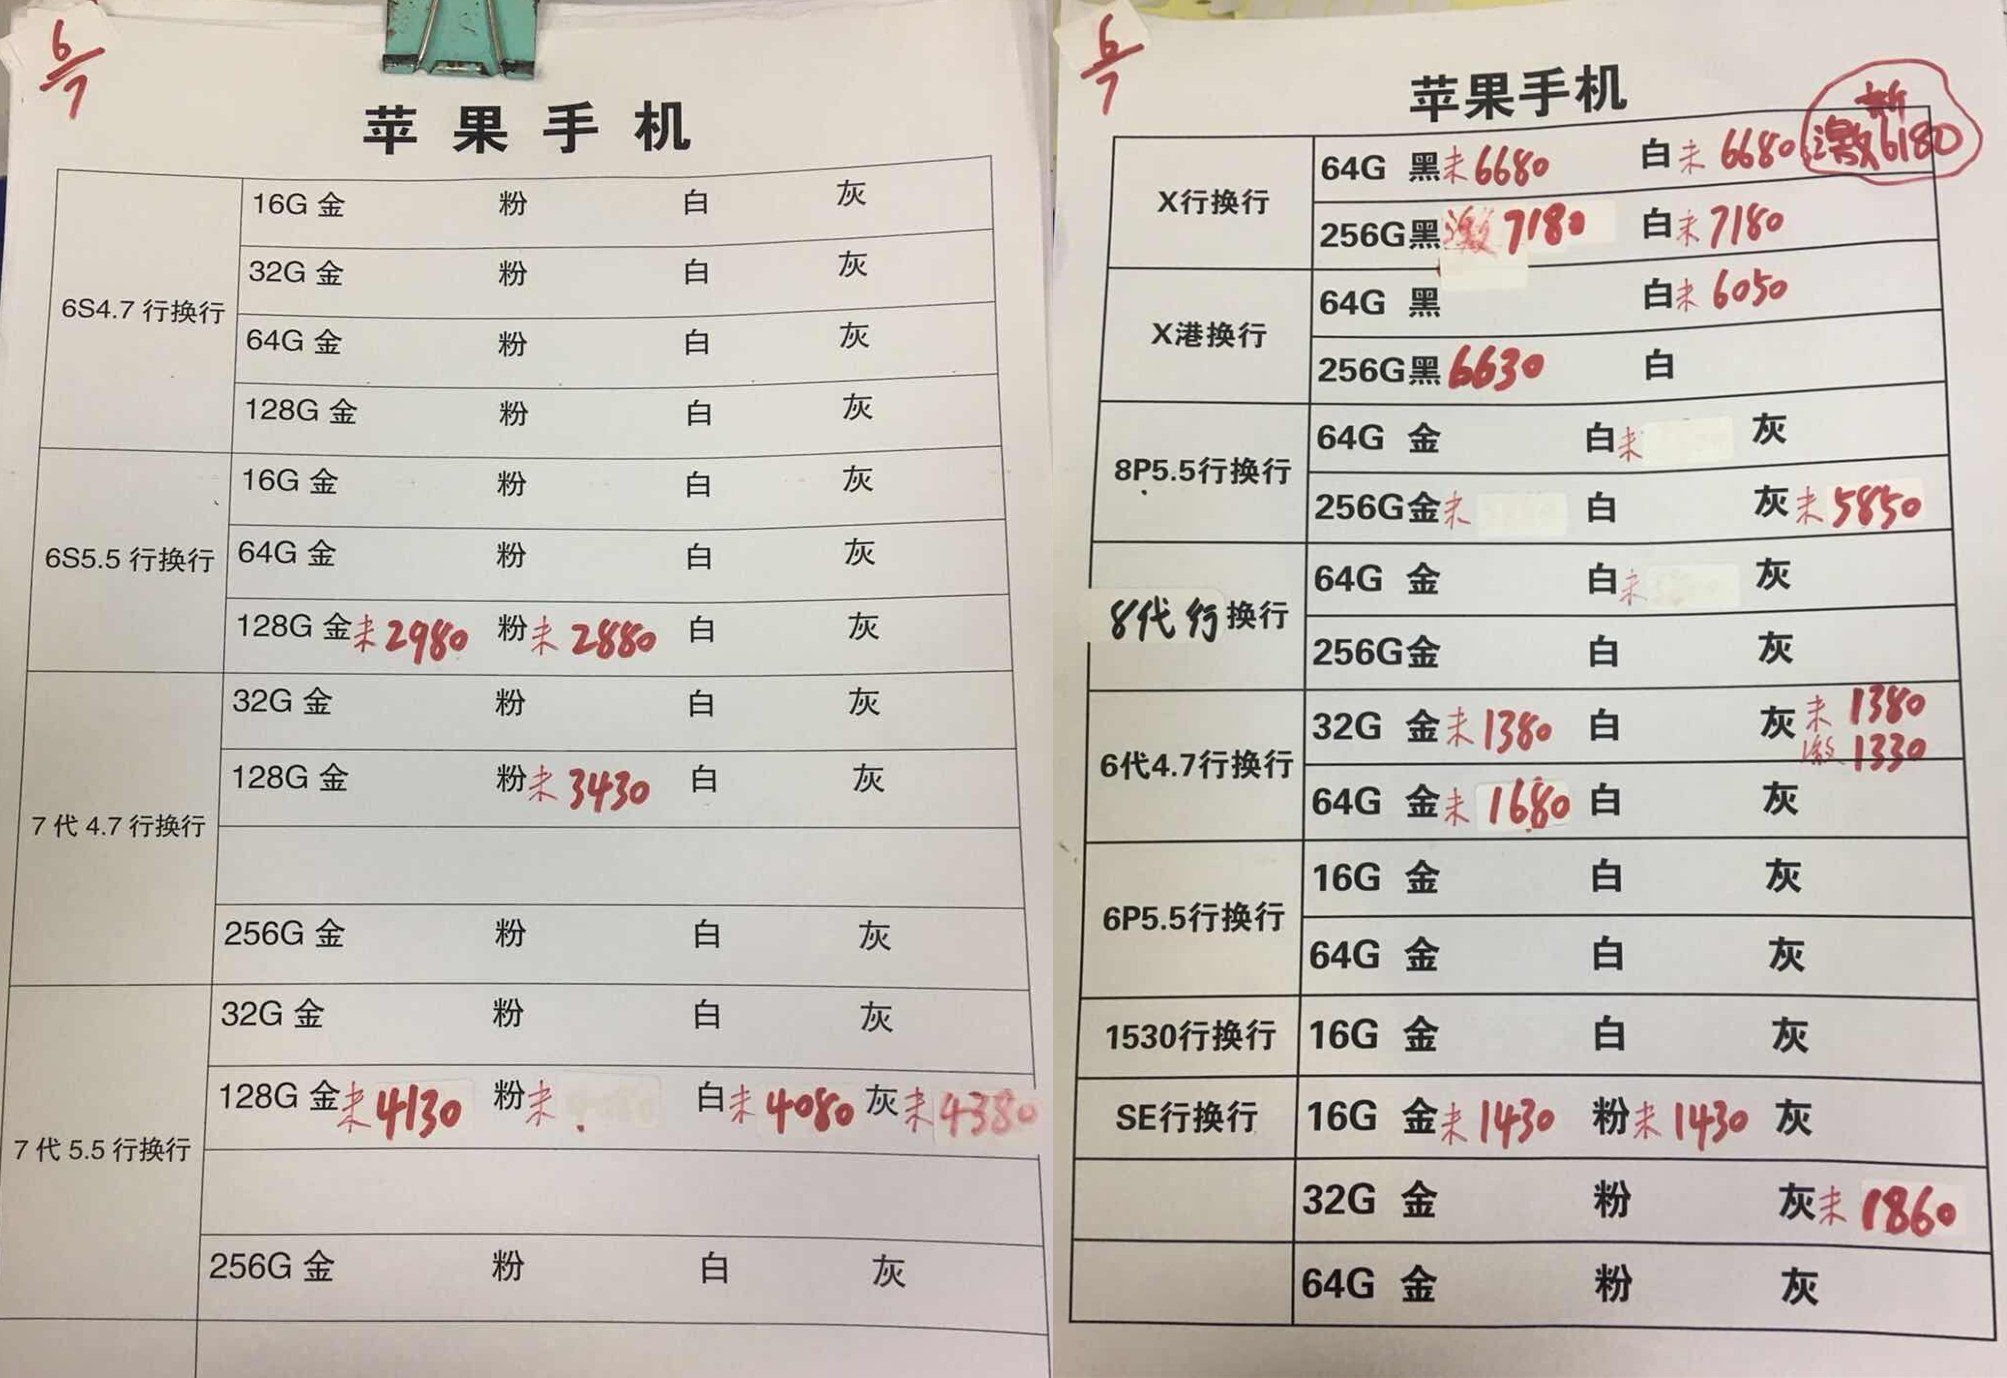 6/7
苹果手机
6S4.7 行换行
16G 金 粉 白 灰
32G 金 粉 白 灰
64G 金 粉 白 灰
128G 金 粉 白 灰
6S5.5 行换行
16G 金 粉 白 灰
64G 金 粉 白 灰
128G 金未2980 粉未2880 白 灰
7代 4.7 行换行
32G 金 粉 白 灰
128G 金 粉未3430 白 灰
256G 金 粉 白 灰
7代 5.5 行换行
32G 金 粉 白 灰
128G 金未4130 粉未 白未4080 灰未4380
256G 金 粉 白 灰
6/7
苹果手机
X行换行
64G 黑未6680 白未6680 新激6180
256G黑激7180 白未7180
X港换行
64G 黑 白未6050
256G黑6630 白
8P5.5行换行
64G 金 白未 灰
256G金未 白 灰未5850
8代行换行
64G 金 白未 灰
256G金 白 灰
6代4.7行换行
32G 金未1380 白 灰未1380
激1330
64G 金未1680 白 灰
6P5.5行换行
16G 金 白 灰
64G 金 白 灰
1530行换行
16G 金 白 灰
SE行换行
16G 金未1430 粉未1430 灰
32G 金 粉 灰未1860
64G 金 粉 灰